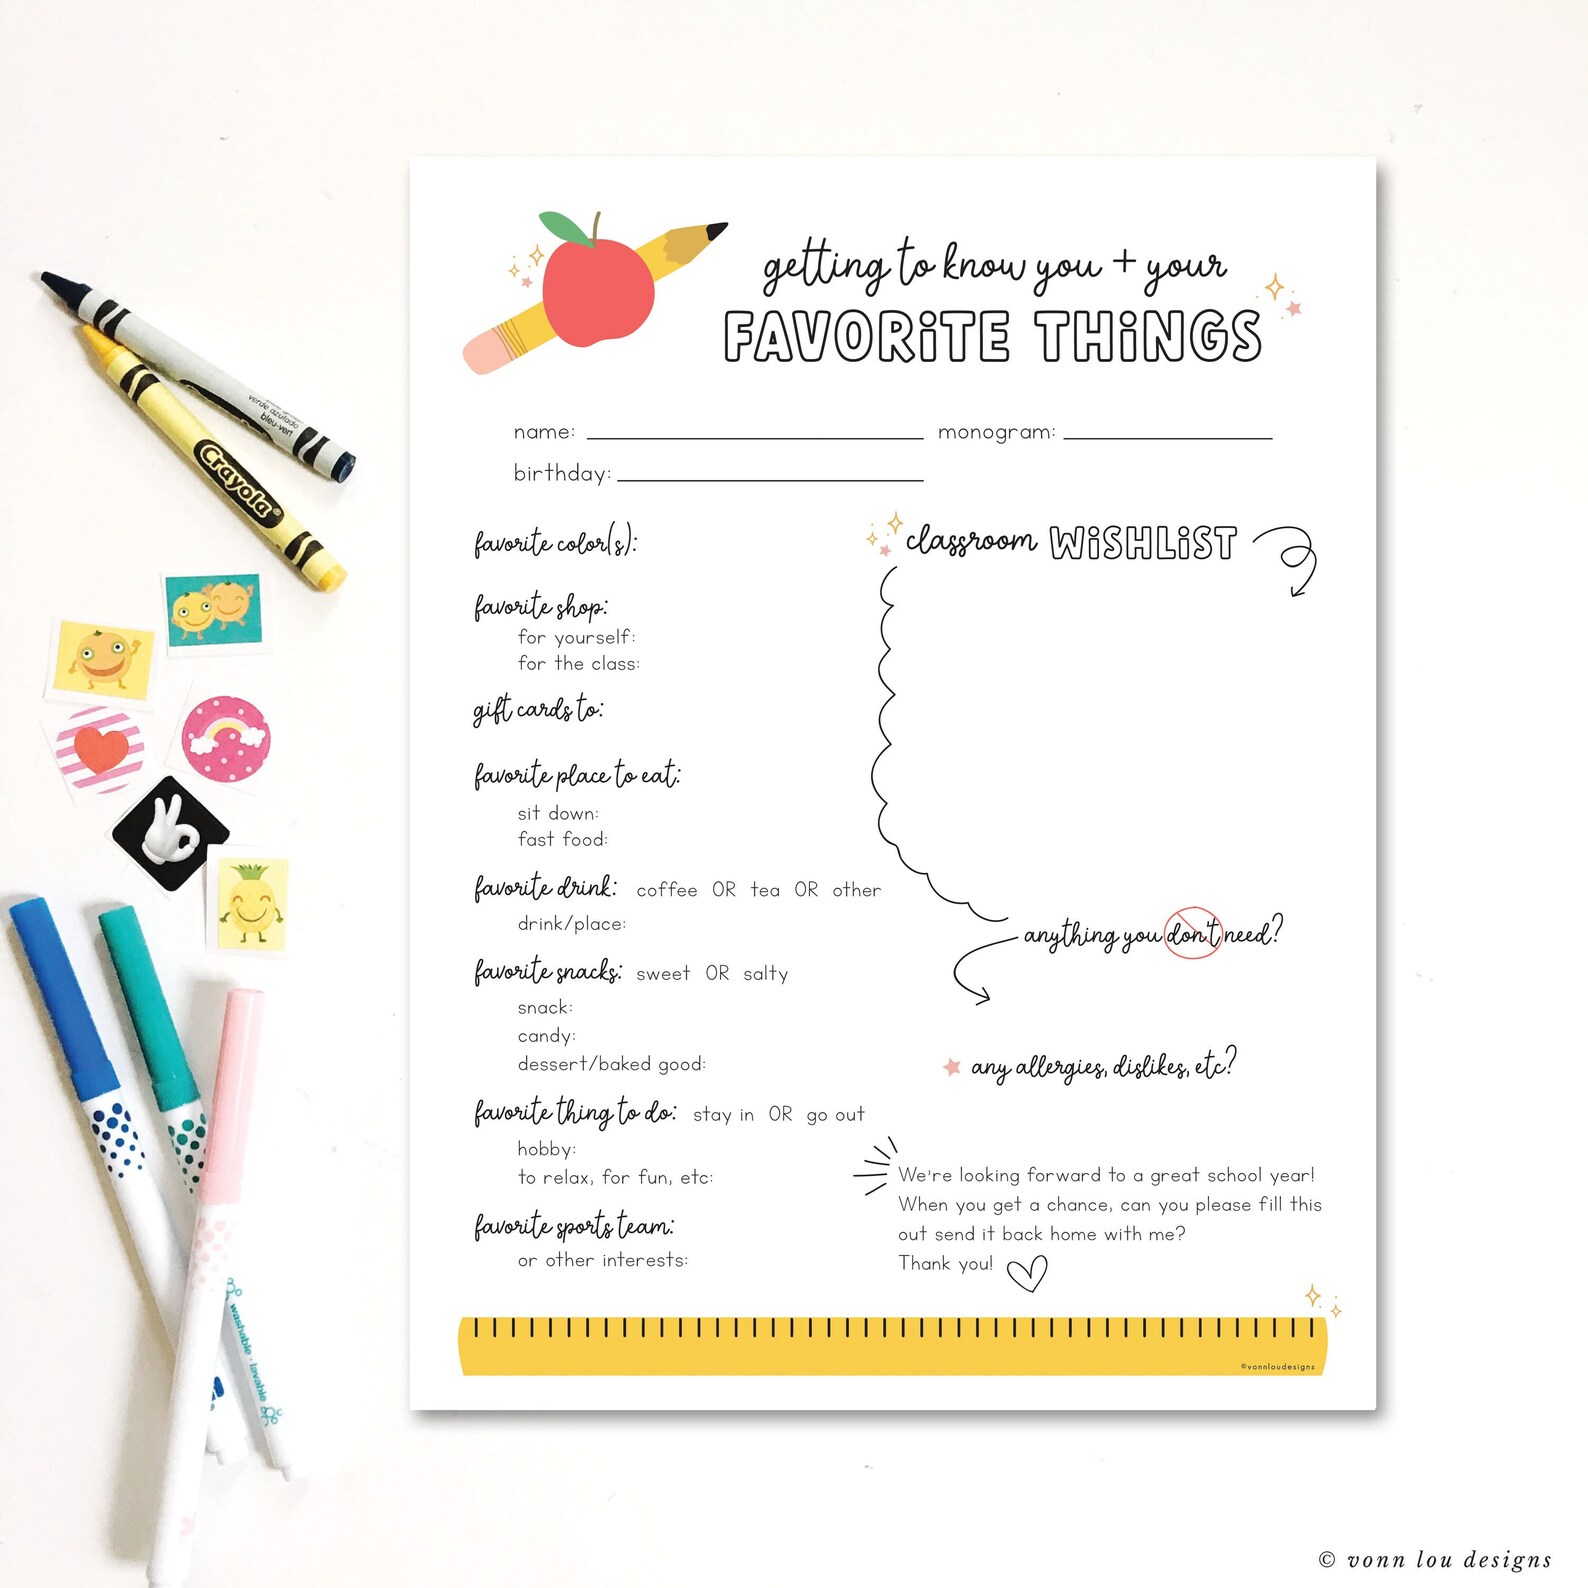 getting to know you + your
FAVORiTE THiNGS
name: monogram:
birthday:
favorite color(s):
favorite shop:
for yourself:
for the class:
gift cards to:
favorite place to eat:
sit down:
fast food:
favorite drink: coffee OR tea OR other
drink/place:
favorite snacks: sweet OR salty
snack:
candy:
dessert/baked good:
favorite thing to do: stay in OR go out
hobby:
to relax, for fun, etc:
favorite sports team:
or other interests:
classroom WiSHLiST
anything you don't need?
any allergies, dislikes, etc?
We're looking forward to a great school year!
When you get a chance, can you please fill this
out send it back home with me?
Thank you!
©vonnloudesigns
verde azulado
bleu-vert
Crayola
washable · lavable
© vonn lou designs